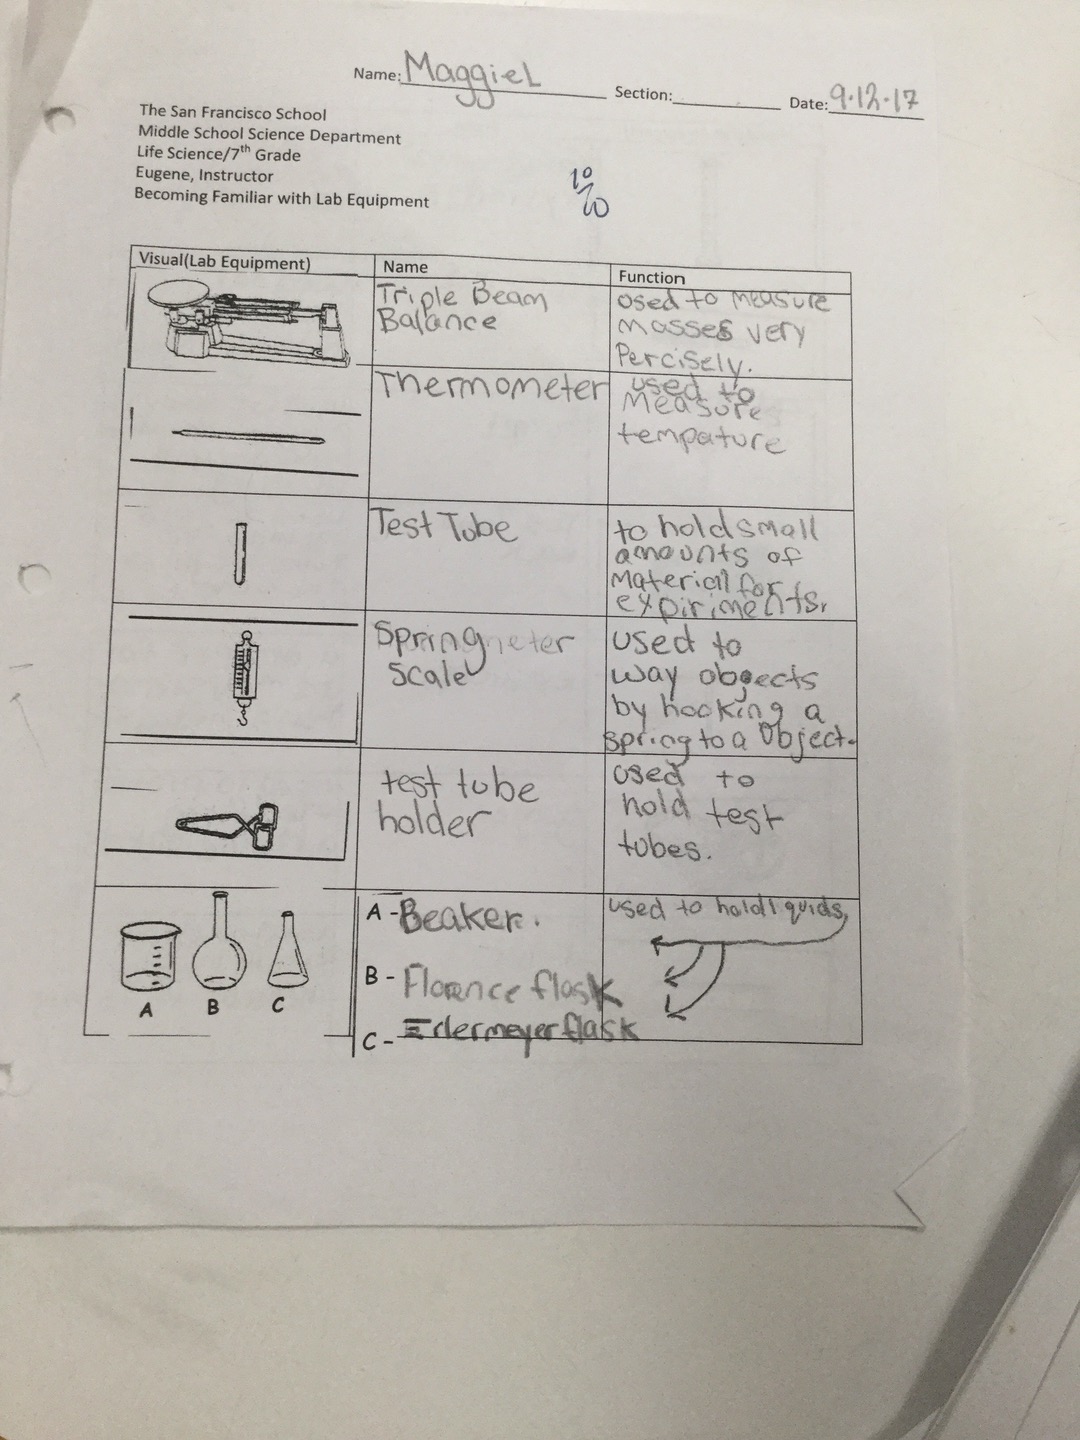 Name: Maggie L Section: Date: 9.12.17
The San Francisco School
Middle School Science Department
Life Science/7th Grade
Eugene, Instructor
Becoming Familiar with Lab Equipment
10/10
Visual(Lab Equipment) Name Function
Triple Beam
Balance
used to measure
masses very
Percisely.
Thermometer
used to
measure
tempature
Test Tube
to hold small
amounts of
Material for
expiriments.
Spring meter
scale
used to
way obgects
by hooking a
spring to a Object.
test tube
holder
used to
hold test
tubes.
A B C
A - Beaker.
B - Florence flask
C - Erlermeyer flask
used to hold liquids,